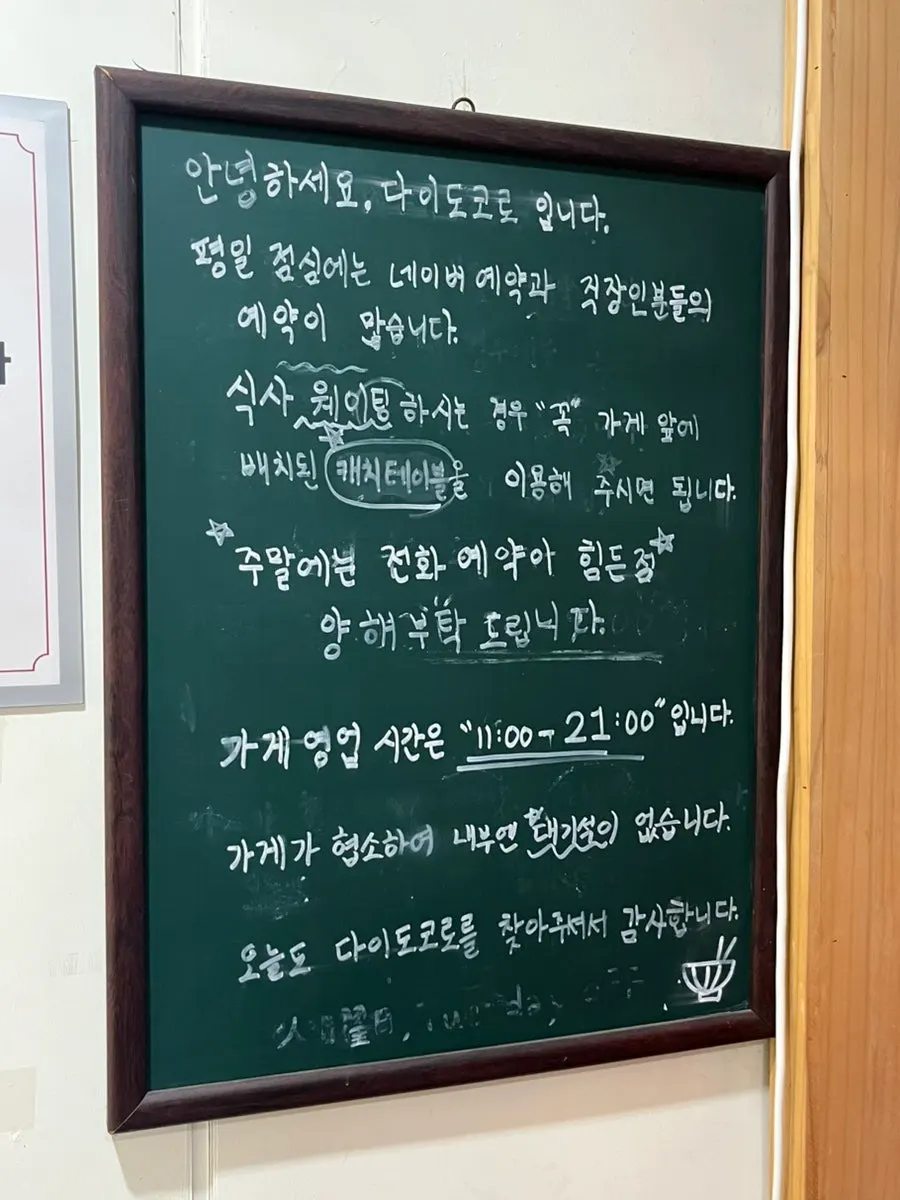 안녕하세요, 다이도코로 입니다.
평일 점심에는 네이버 예약과 직장인분들의
예약이 많습니다.
식사 웨이팅 하시는 경우 "꼭" 가게 앞에
배치된 캐치테이블을 이용해 주시면 됩니다.
주말에는 전화 예약이 힘든점
양해 부탁 드립니다.
가게 영업 시간은 "11:00 - 21:00" 입니다.
가게가 협소하여 내부엔 대기석이 없습니다.
오늘도 다이도코로를 찾아주셔서 감사합니다.